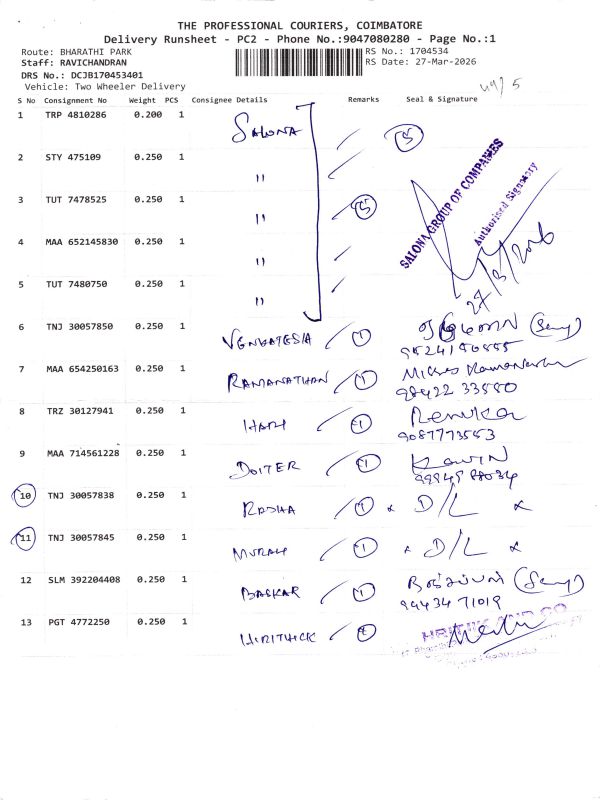 THE PROFESSIONAL COURIERS, COIMBATORE
Delivery Runsheet - PC2 - Phone No.:9047080280 - Page No.:1
Route: BHARATHI PARK
RS No.: 1704534
Staff: RAVICHANDRAN
RS Date: 27-Mar-2026
DRS No.: DCJB170453401
Vehicle: Two Wheeler Delivery
S No Consignment No Weight PCS Consignee Details Remarks Seal & Signature
1 TRP 4810286 0.200 1 SALONA 5
2 STY 475109 0.250 1 "
3 TUT 7478525 0.250 1 " 5
4 MAA 652145830 0.250 1 "
5 TUT 7480750 0.250 1 "
SALONA GROUP OF COMPANIES
Authorised Signatory
27/3/2026
6 TNJ 30057850 0.250 1 VENKATESIA 1
7 MAA 654250163 0.250 1 RAMANATHAN 1
98422 33580
8 TRZ 30127941 0.250 1 HARI 1 Renuka
9087773553
9 MAA 714561228 0.250 1 DOITER 1 Kavin
10 TNJ 30057838 0.250 1 RADHA 1 x D/L x
11 TNJ 30057845 0.250 1 MURALI 1 x D/L x
12 SLM 392204408 0.250 1 BASKAR 1
94434 71019
13 PGT 4772250 0.250 1 HIRITHICK 1